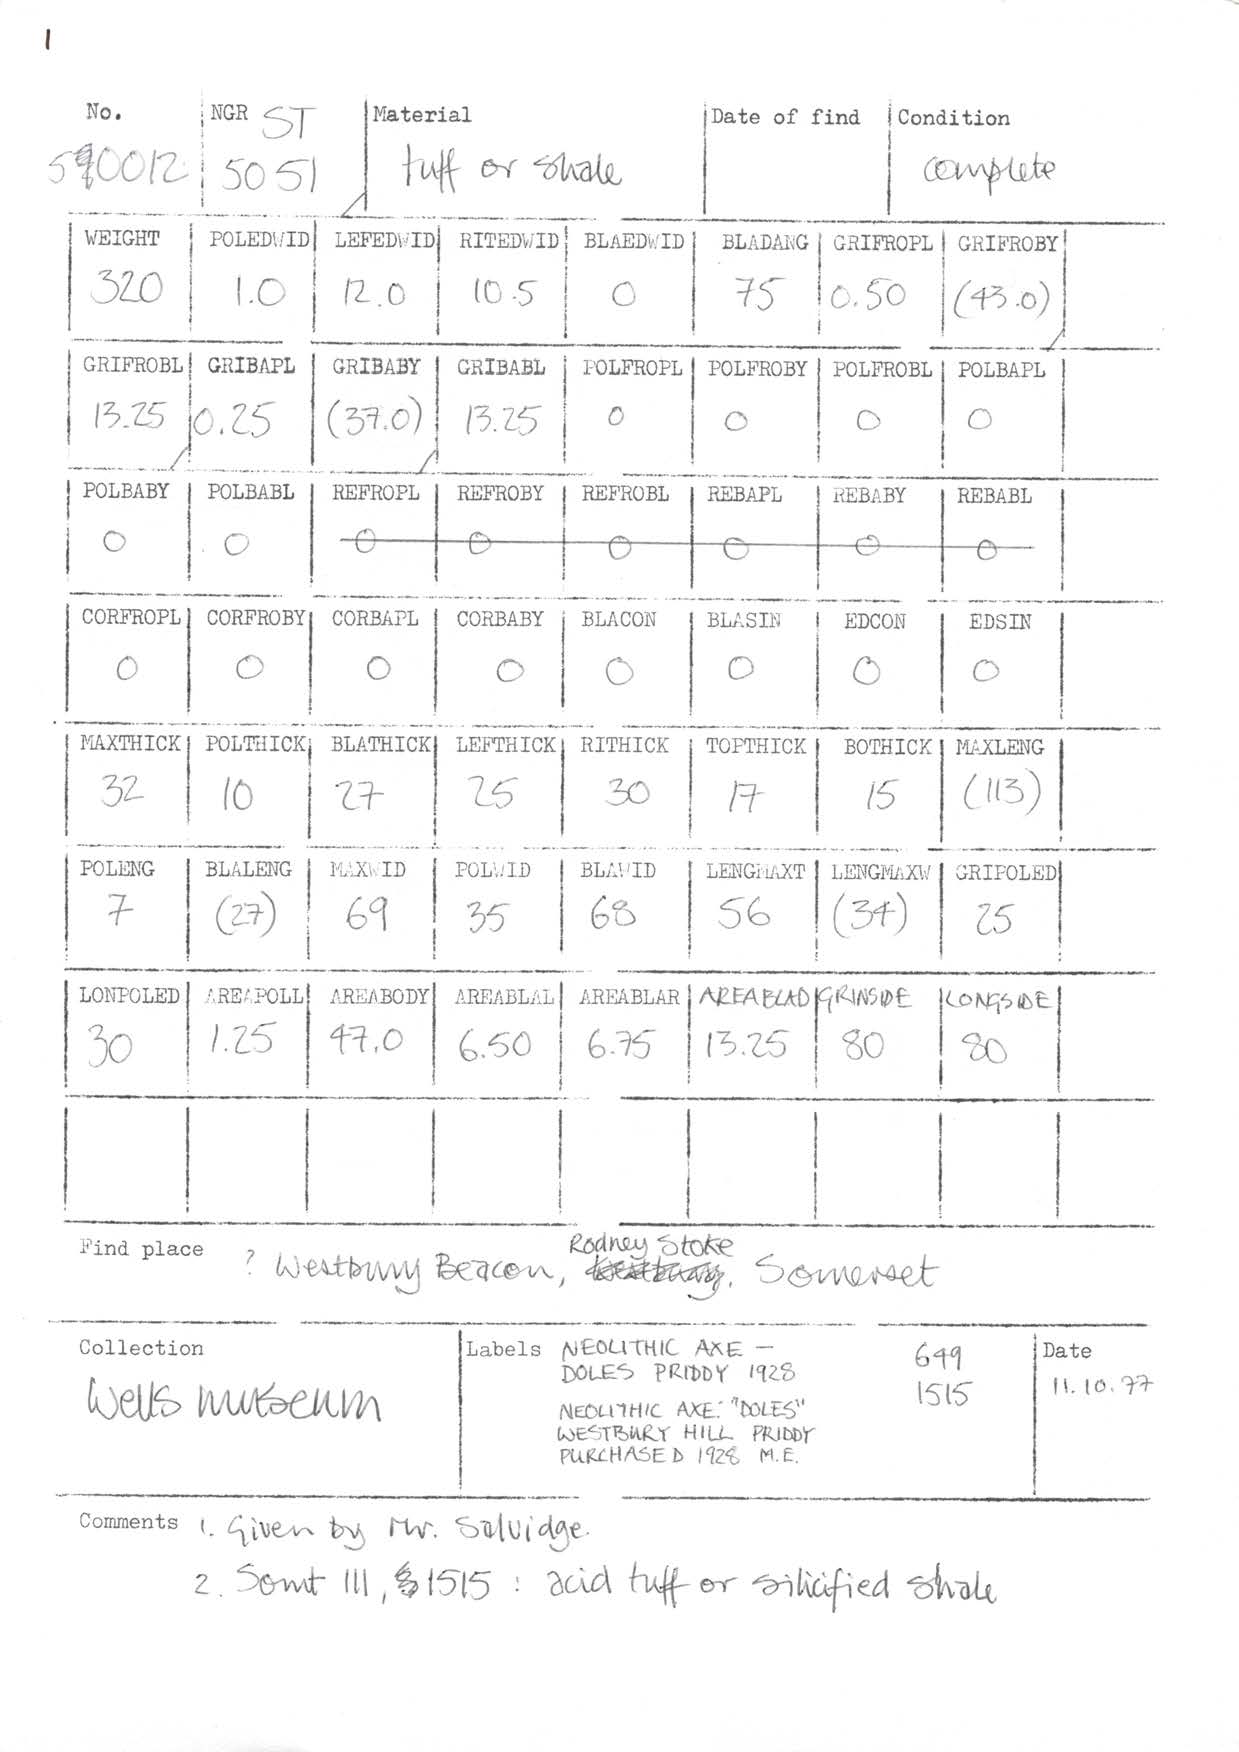 1
No. NGR ST Material Date of find Condition
590012 5051 tuff or shale complete
WEIGHT POLEDWID LEFEDWID RITEDWID BLAEDWID BLADANG GRIFROPL GRIFROBY
320 1.0 12.0 10.5 0 75 0.50 (43.0)
GRIFROBL GRIBAPL GRIBABY GRIBABL POLFROPL POLFROBY POLFROBL POLBAPL
13.25 0.25 (37.0) 13.25 0 0 0 0
POLBABY POLBABL REFROPL REFROBY REFROBL REBAPL REBABY REBABL
0 0 0 0 0 0 0 0
CORFROPL CORFROBY CORBAPL CORBABY BLACON BLASIN EDCON EDSIN
0 0 0 0 0 0 0 0
MAXTHICK POLTHICK BLATHICK LEFTHICK RITHICK TOPTHICK BOTHICK MAXLENG
32 10 27 25 30 17 15 (113)
POLENG BLALENG MAXWID POLWID BLAWID LENGMAXT LENGMAXW GRIPOLED
7 (27) 69 35 68 56 (34) 25
LONPOLED AREAPOLL AREABODY AREABLAL AREABLAR AREABLAD GRINSIDE LONGSIDE
30 1.25 47.0 6.50 6.75 13.25 80 80
Rodney Stoke
Find place ? Westbury Beacon, Westbury, Somerset
Collection
Wells Museum
Labels NEOLITHIC AXE – 649
DOLES PRIDDY 1928 1515
NEOLITHIC AXE: "DOLES"
WESTBURY HILL PRIDDY
PURCHASED 1928 M.E.
Date
11.10.77
Comments 1. Given by Mr. Salvidge.
2. Somt III, § 1515 : acid tuff or silicified shale